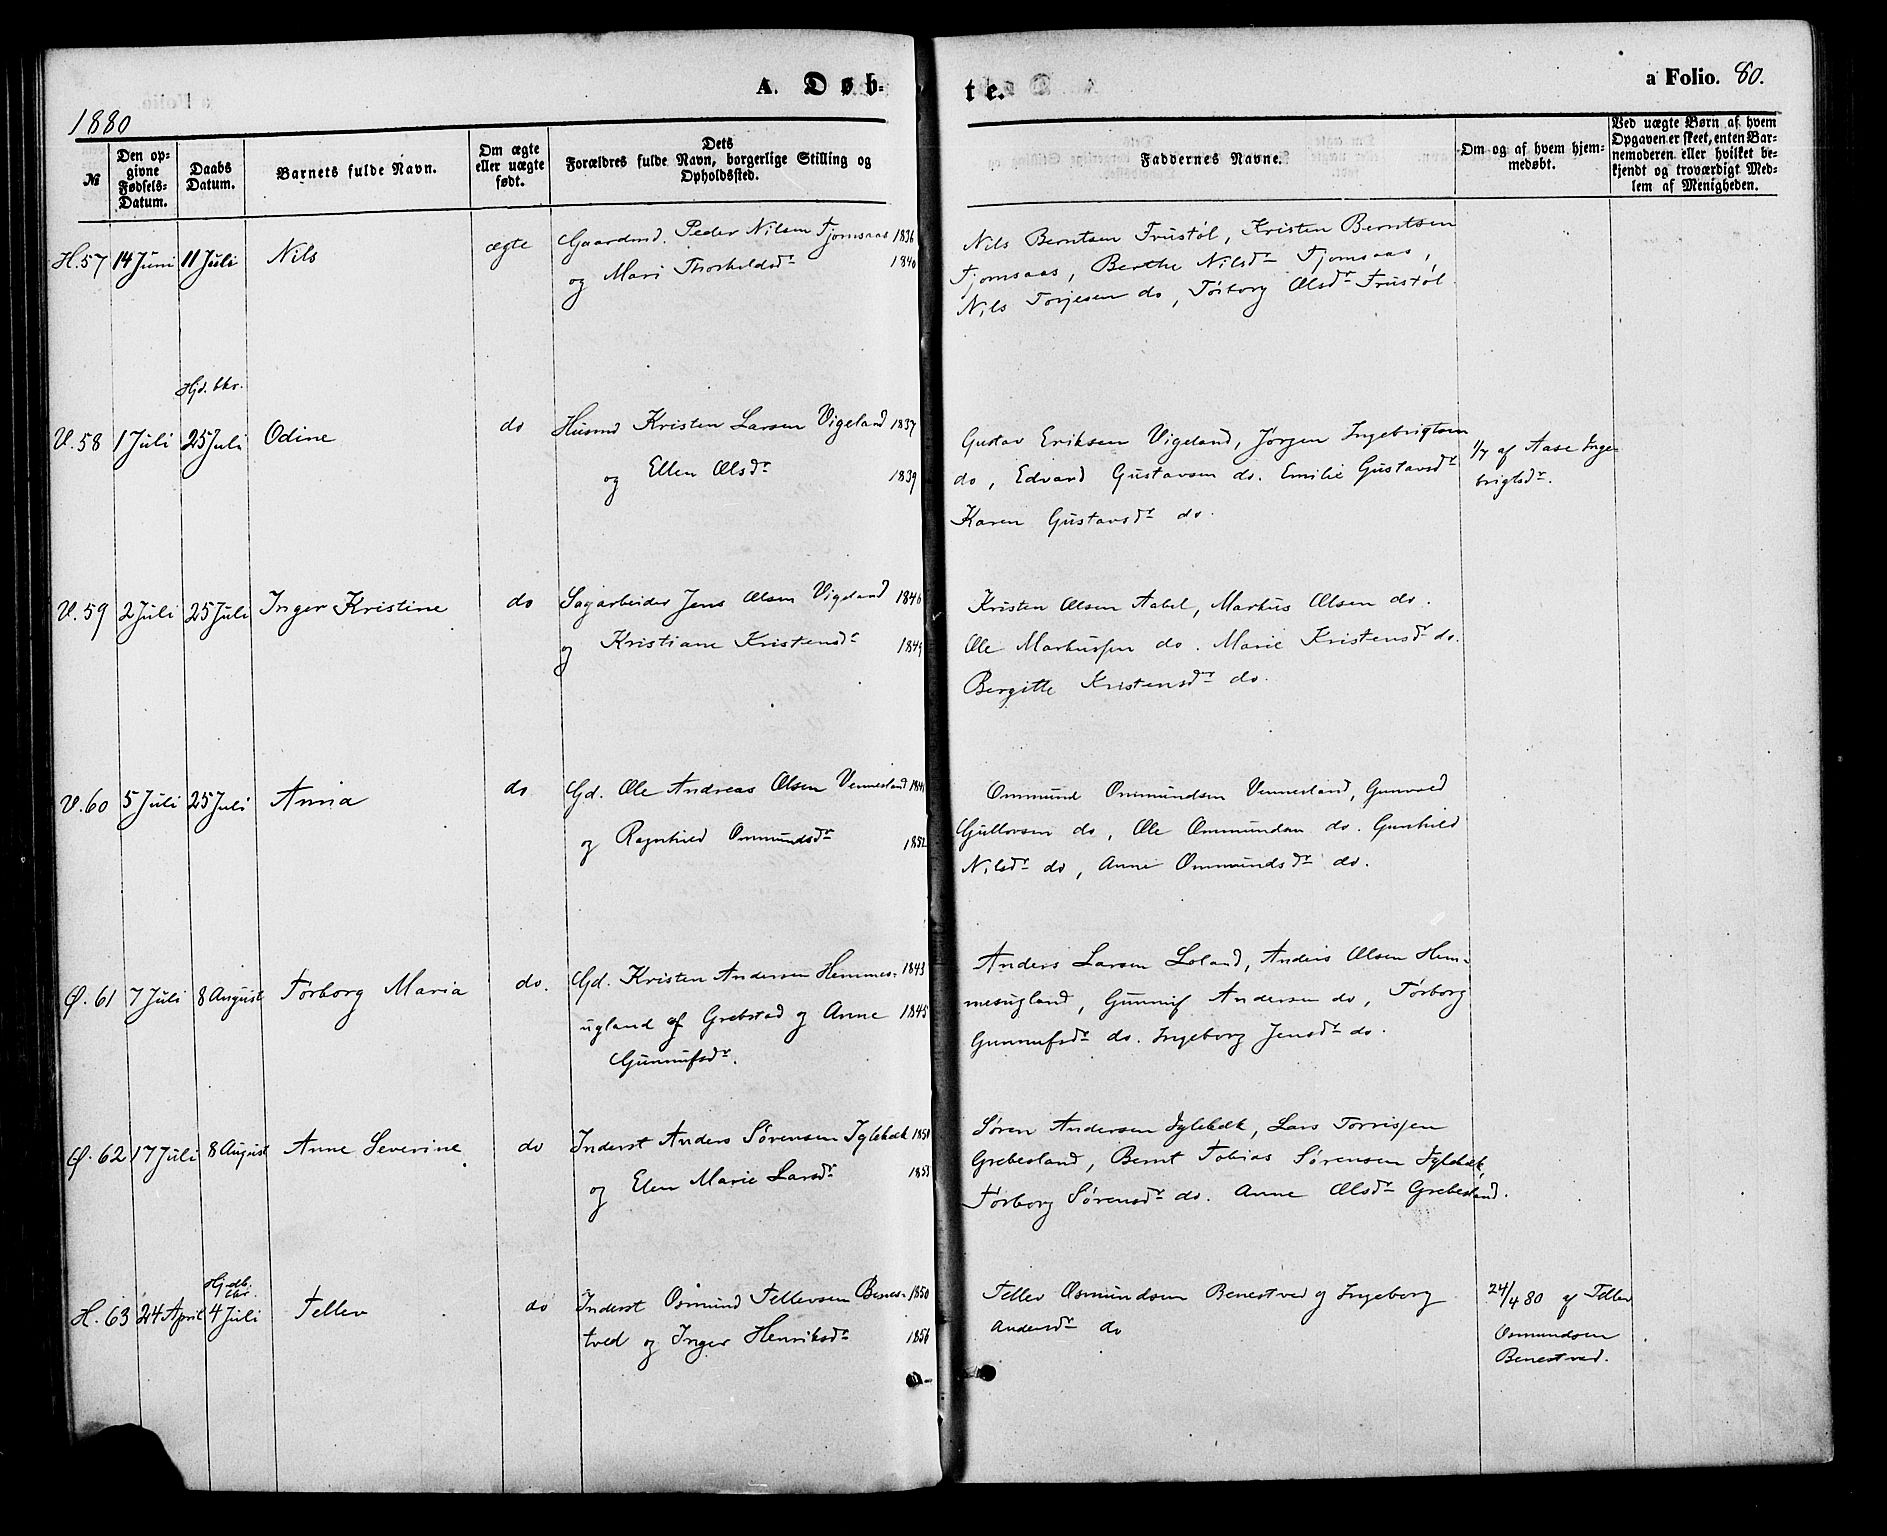 1880
A. Døb-
te.
a Folio. 80.
№
Den op-
givne
Fødsels-
Datum.
Daabs
Datum.
Barnets fulde Navn.
Om ægte
eller uægte
født.
Dets
Forældres fulde Navn, borgerlige Stilling og
Opholdssted.
Faddernes Navne.
Om og af hvem hjem-
medøbt.
Ved uægte Børn af hvem
Opgaven er skeet, enten Bar-
nemoderen eller hvilket be-
kjendt og troværdigt Med-
lem af Menigheden.
H.57 14 Juni 11 Juli Nils ægte Gaardmd. Peder Nilsen Fjomsaas 1836
og Mari Thorkeldsdr 1840
Nils Berntsen Frustøl, Kristen Berntsen
Fjomsaas, Berthe Nilsdr Fjomsaas,
Nils Torjesen do, Torborg Olsdr Frustøl.
Hjd. bkr.
V.58 1 Juli 25 Juli Odine do Husmd Kristen Larsen Vigeland 1837
og Ellen Olsdr 1839
Gustav Eriksen Vigeland, Jørgen Ingebrigtsen
do, Edvard Gustavsen do. Emilie Gustavsdr
Karen Gustavsdr do.
1/7 af Aase Inge-
brigtsdr.
V.59 2 Juli 25 Juli Inger Kristine do Sagarbeider Jens Olsen Vigeland 1846
og Kristiane Kristensdr 1849
Kristen Olsen Aabel, Markus Olsen do.
Ole Markussen do. Marie Kristensdr do.
Bergitte Kristensdr do.
V.60 5 Juli 25 Juli Anna do Gd. Ole Andreas Olsen Vennesland
og Ragnhild Ommundsdr 1852
Ommund Ommundsen Vennesland, Gunvald
Gullovsen do, Ole Ommundsen do. Gunhild
Nilsdr do, Anne Ommundsdr do.
Ø.61 7 Juli 8 August Torborg Maria do. Gd. Kristen Andersen Hemmes- 1843
ugland af Grebstad og Anne 1845
Gunnufsdr.
Anders Larsen Loland, Anders Olsen Hem-
mesugland, Gunnuf Andersen do, Torborg
Gunnufsdr do. Ingeborg Jensdr do.
Ø.62 17 Juli 8 August Anne Severine do Inderst Anders Sørensen Iglebæk 1850
og Elen Marie Larsdr 1853
Søren Andersen Iglebæk, Lars Torrissen
Grebesland, Bernt Tobias Sørensen Iglebæk,
Torborg Sørensdr do. Anne Olsdr Grebesland.
Hj. db.
bkr.
H.63 24 April 4 Juli Tellev do Inderst Osmund Tellevsen Benes- 1850
tved og Inger Henriksdr 1856
Tellev Osmundsen Benestved og Ingeborg
Andersdr do
24/4 80 af Tellev
Osmundsen
Benestved.